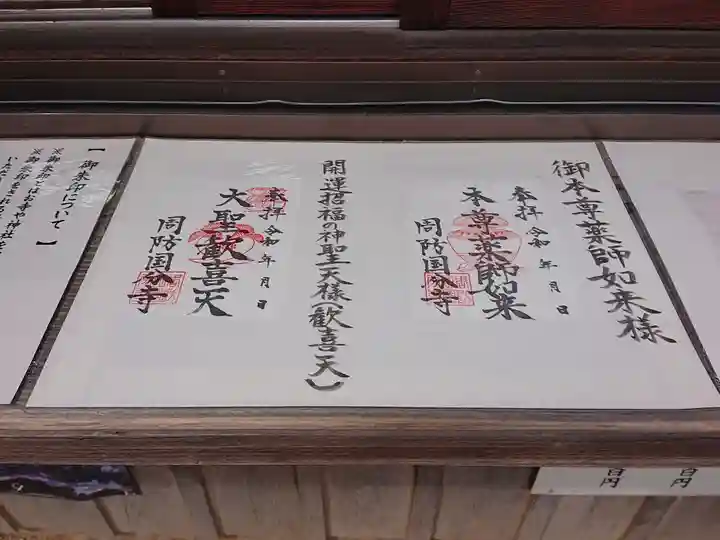 御本尊薬師如来様
奉拝 令和 年 月 日
本尊薬師如来
周防国分寺
開運招福の神聖天様(歓喜天)
奉拝 令和 年 月 日
大聖歓喜天
周防国分寺
【御朱印について】
※御朱印とはお寺や神社を
百円
百円